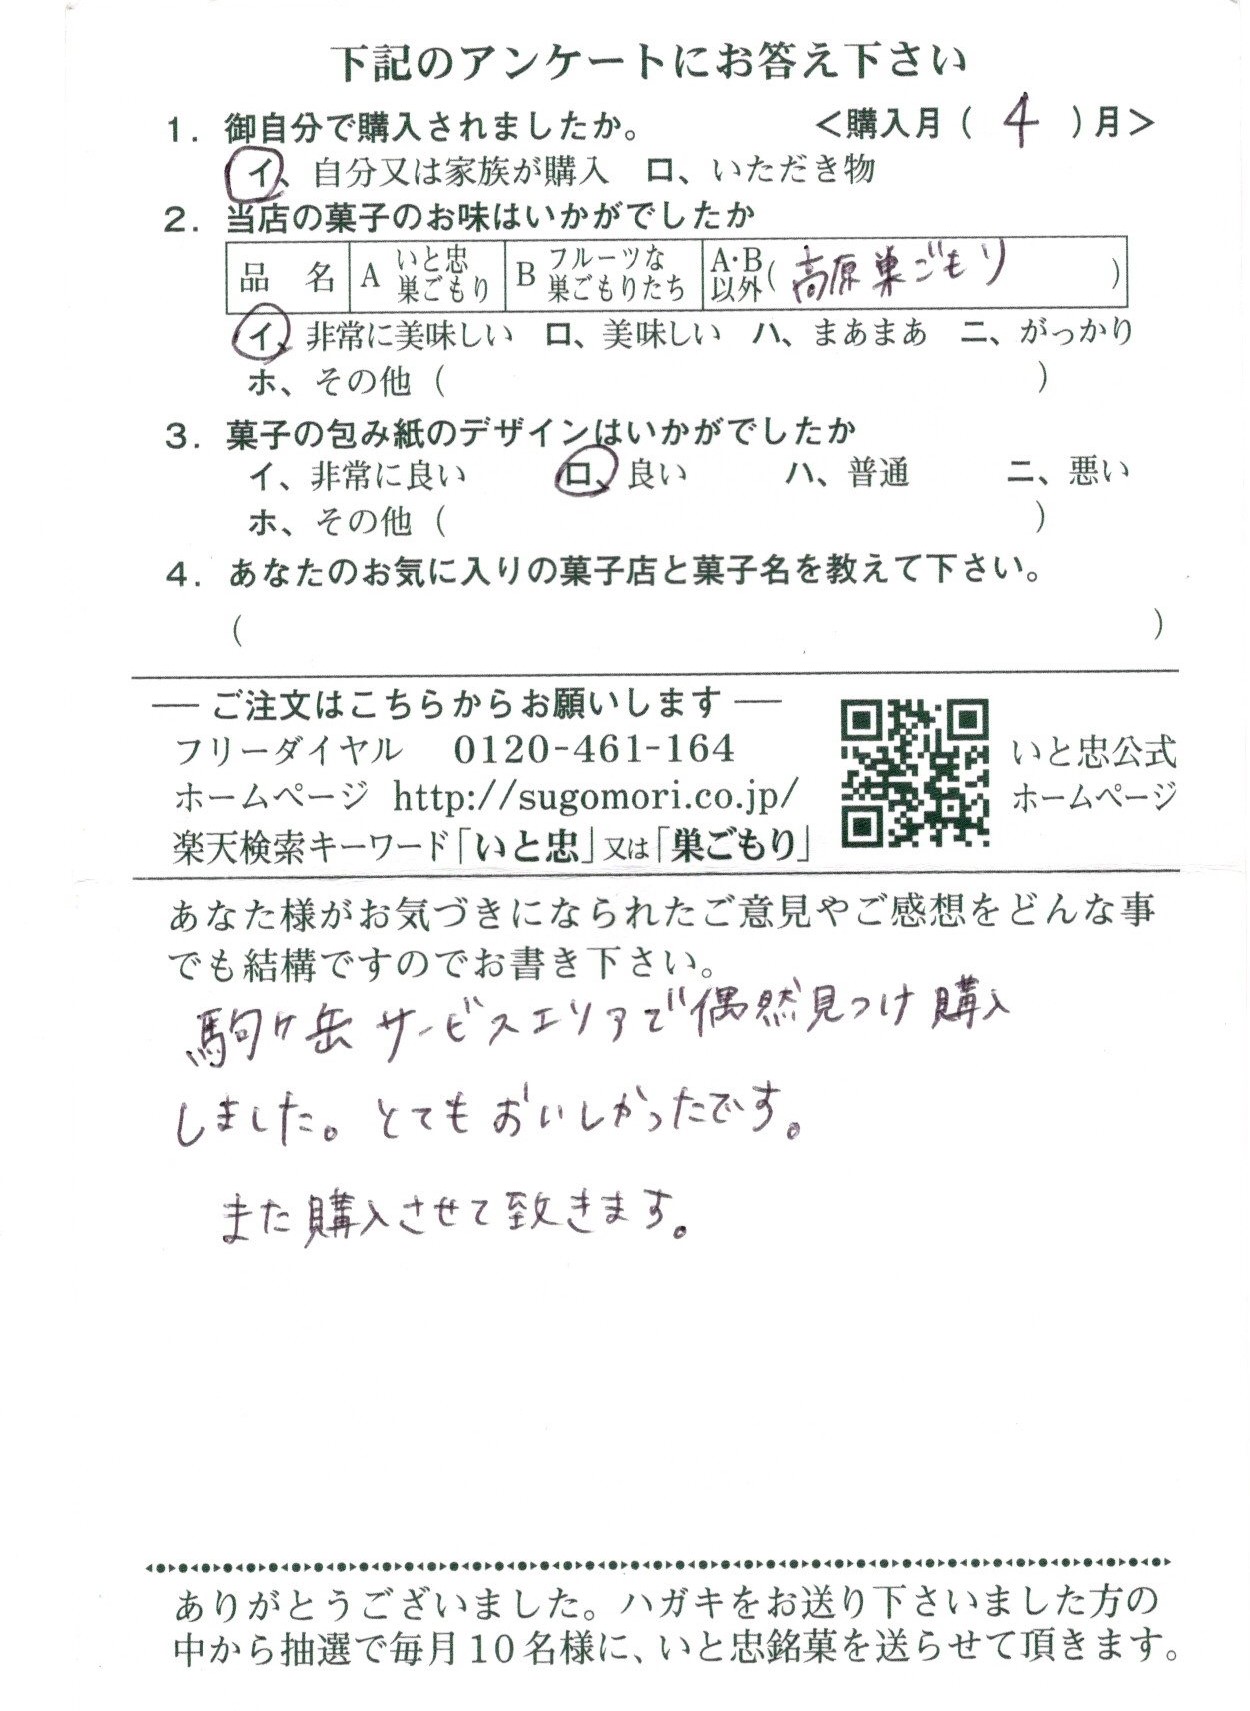 下記のアンケートにお答え下さい
1. 御自分で購入されましたか。 ＜購入月（ 4 ）月＞
イ、自分又は家族が購入 ロ、いただき物
2. 当店の菓子のお味はいかがでしたか
品 名 A いと忠巣ごもり B フルーツな巣ごもりたち A・B以外（ 高原巣ごもり ）
イ、非常に美味しい ロ、美味しい ハ、まあまあ ニ、がっかり
ホ、その他（ ）
3. 菓子の包み紙のデザインはいかがでしたか
イ、非常に良い ロ、良い ハ、普通 ニ、悪い
ホ、その他（ ）
4. あなたのお気に入りの菓子店と菓子名を教えて下さい。
（ ）
― ご注文はこちらからお願いします ―
フリーダイヤル 0120-461-164
ホームページ http://sugomori.co.jp/
楽天検索キーワード「いと忠」又は「巣ごもり」
いと忠公式
ホームページ
あなた様がお気づきになられたご意見やご感想をどんな事
でも結構ですのでお書き下さい。
駒ヶ岳サービスエリアで偶然見つけ購入
しました。とてもおいしかったです。
また購入させて致きます。
ありがとうございました。ハガキをお送り下さいました方の
中から抽選で毎月10名様に、いと忠銘菓を送らせて頂きます。